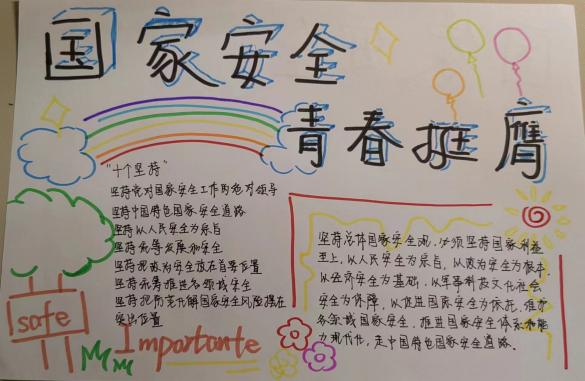 国家安全
青春挺膺
"十个坚持"
坚持党对国家安全工作的绝对领导
坚持中国特色国家安全道路
坚持以人民安全为宗旨
坚持统筹发展和安全
坚持把政治安全放在首要位置
坚持统筹推进各领域安全
坚持把防范化解国家安全风险摆在
突出位置
safe
Importante
坚持总体国家安全观,必须坚持国家利益
至上,以人民安全为宗旨,以政治安全为根本,
以经济安全为基础,以军事科技文化社会
安全为保障,以促进国际安全为依托,维护
各领域国家安全,推进国家安全体系和能
力现代化,走中国特色国家安全道路.